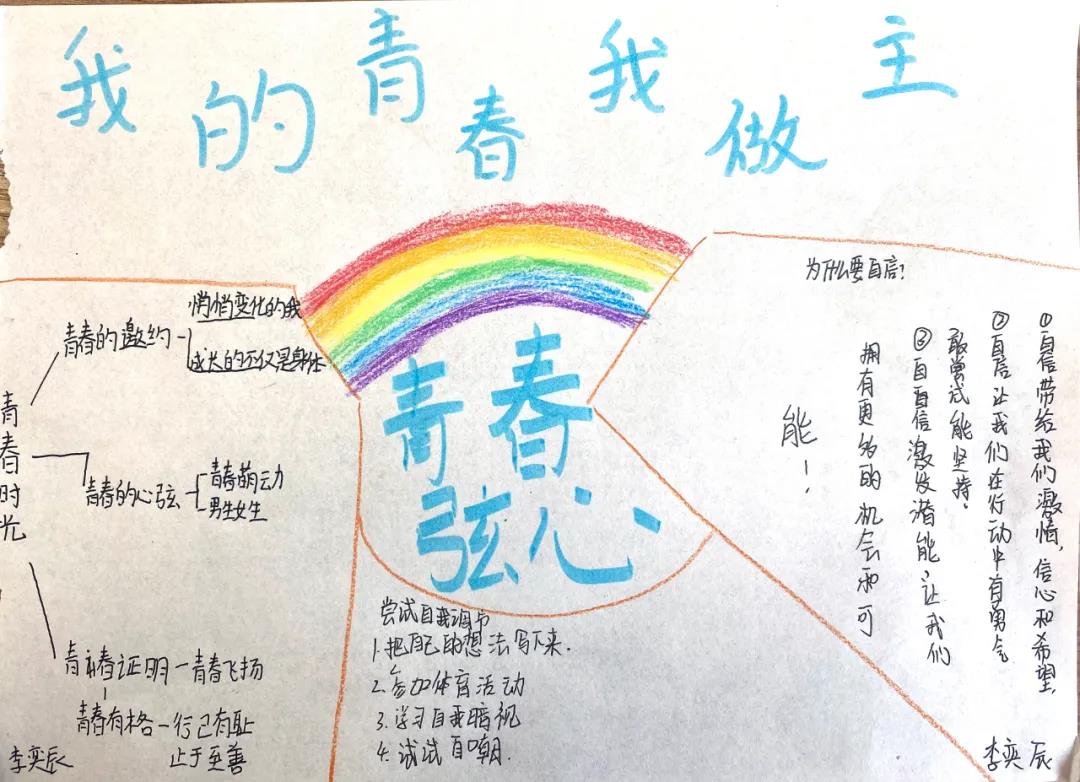 我的青春我做主
青春
弦心
青春时光
青春的邀约
悄悄变化的我
成长的不仅是身体
青春的心弦
青春萌动
男生女生
青春证明一青春飞扬
青春有格一行已有耻
止于至善
李奕辰
尝试自我调节
1.把自己的想法写下来.
2.参加体育活动
3.学习自我暗视
4.试试自嘲.
为什么要自信?
①自信带给我们激情,信心和希望,
②自信让我们在行动中有勇气
敢尝试能坚持,
③自自信激发潜能,让我们
拥有更多的机会和可
能!
李奕辰